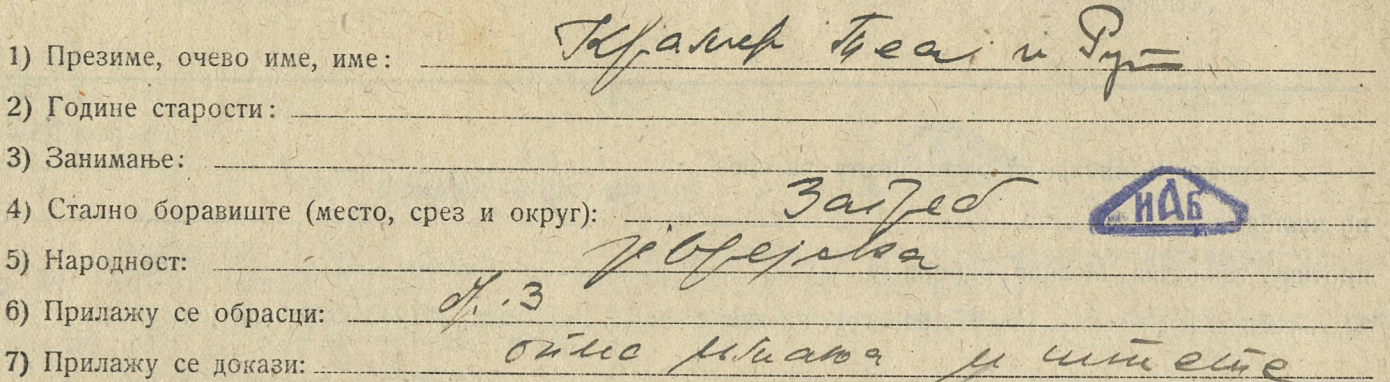 1) Презиме, очево име, име: Крамер Теа и Рут
2) Године старости:
3) Занимање:
4) Стално боравиште (место, срез и округ): Загреб
ИАБ
5) Народност: јеврејска
6) Прилажу се обрасци: 3
7) Прилажу се докази: опис имања и штете